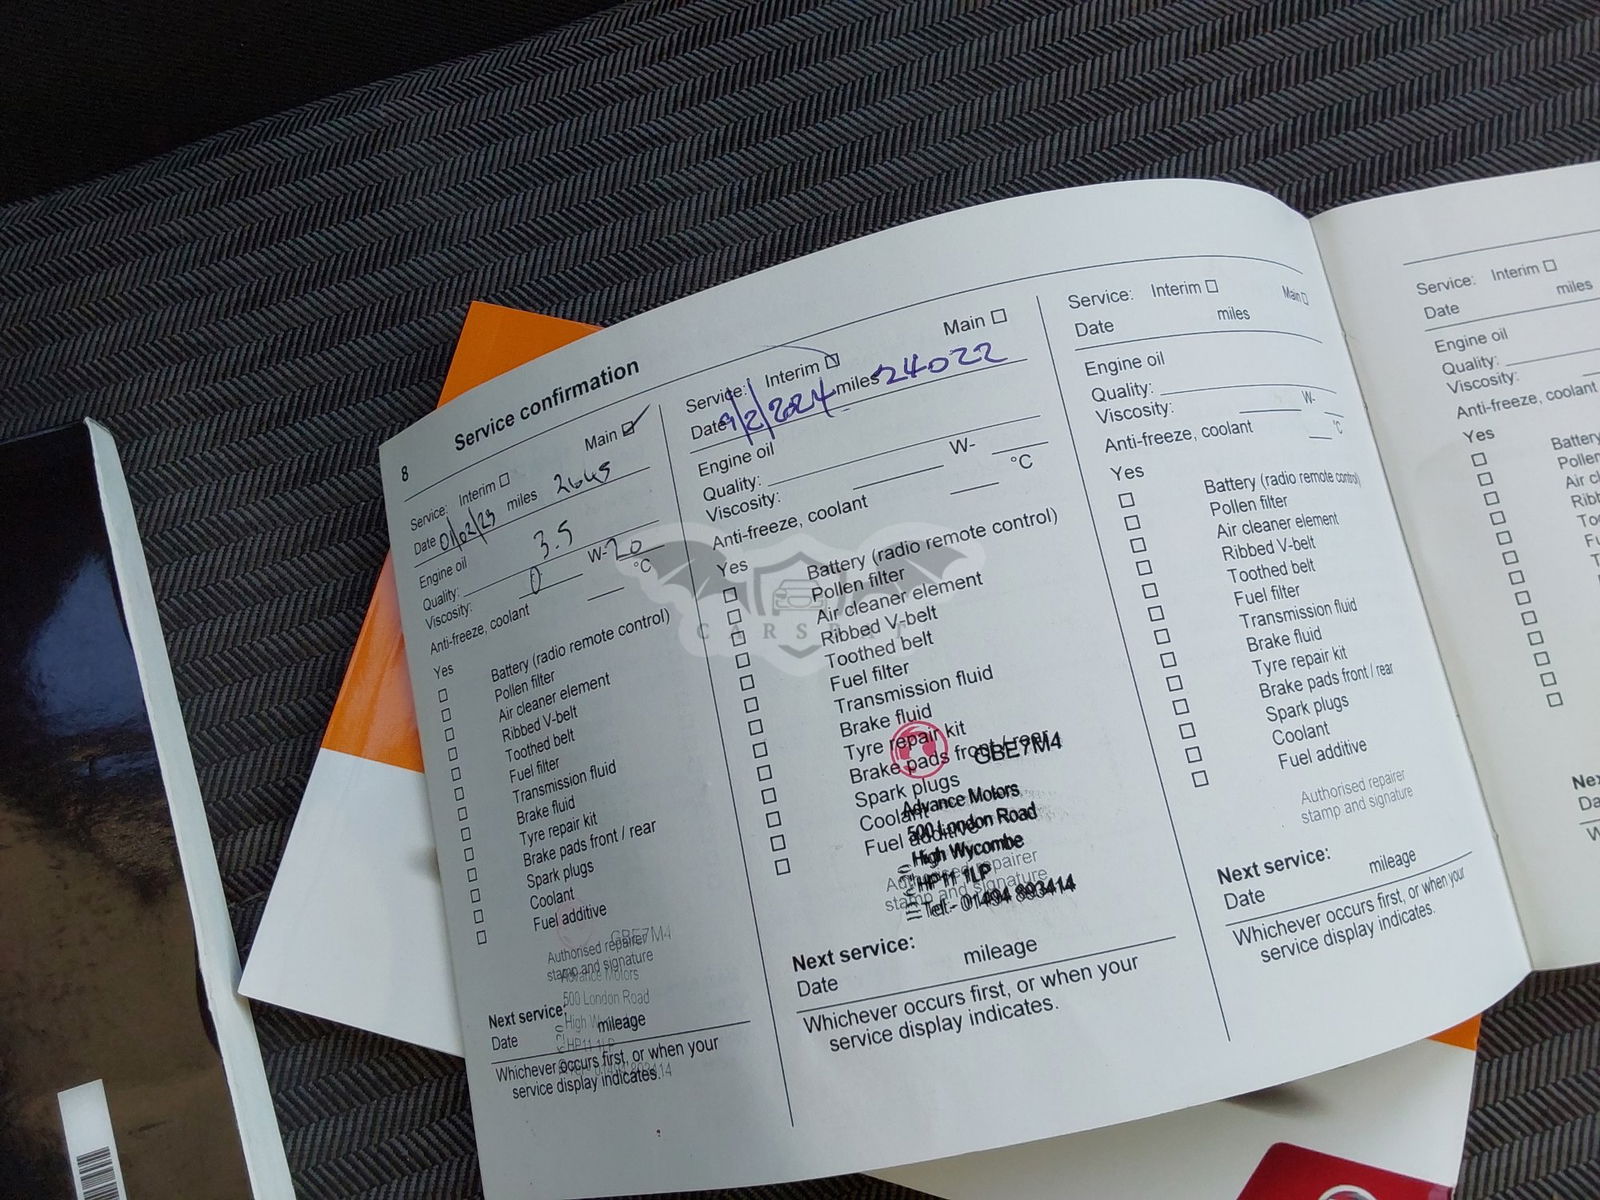 8 Service confirmation
Service: Interim Main
Date 01/02/23 miles 2645
Engine oil 3.5
Quality: 0 W-20
Viscosity: °C
Anti-freeze, coolant
Yes
Battery (radio remote control)
Pollen filter
Air cleaner element
Ribbed V-belt
Toothed belt
Fuel filter
Transmission fluid
Brake fluid
Tyre repair kit
Brake pads front / rear
Spark plugs
Coolant
Fuel additive
GBE7M4
Authorised repairer
stamp and signature
Advance Motors
500 London Road
High Wycombe
HP11 1LP
Next service:
Date mileage
Whichever occurs first, or when your
service display indicates.
Service: Interim Main
Date 9/2/2024 miles 24022
Engine oil
Quality: W-
Viscosity: °C
Anti-freeze, coolant
Yes
Battery (radio remote control)
Pollen filter
Air cleaner element
Ribbed V-belt
Toothed belt
Fuel filter
Transmission fluid
Brake fluid
Tyre repair kit
Brake pads front / rear
Spark plugs
Coolant
Fuel additive
GBE7M4
Advance Motors
500 London Road
High Wycombe
HP11 1LP
Tel:- 01494 893414
Authorised repairer
stamp and signature
Next service:
Date mileage
Whichever occurs first, or when your
service display indicates.
Service: Interim Main
Date miles
Engine oil
Quality:
Viscosity: W-
Anti-freeze, coolant °C
Yes
Battery (radio remote control)
Pollen filter
Air cleaner element
Ribbed V-belt
Toothed belt
Fuel filter
Transmission fluid
Brake fluid
Tyre repair kit
Brake pads front / rear
Spark plugs
Coolant
Fuel additive
Authorised repairer
stamp and signature
Next service:
Date mileage
Whichever occurs first, or when your
service display indicates.
Service: Interim
Date miles
Engine oil
Quality:
Viscosity:
Anti-freeze, coolant
Yes